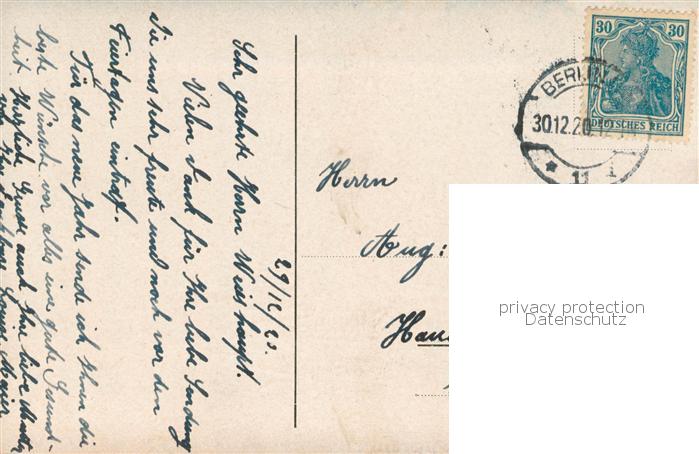 30 30
DEUTSCHES REICH
BERLIN
30.12.20.
* 11 i
29/12/20.
Sehr geehrter Herrn Weishaupt.
Vielen Dank für Ihre liebe Sendung
die uns sehr freute und noch vor den
Feiertagen eintraf.
Für das neue Jahr sende ich Ihnen die
beste Wünsche vor alles eine gute Gesund-
heit. Herzliche Grüße auch Ihre liebe Mutter
von Ihr
Herrn
Aug:
privacy protection
Datenschutz